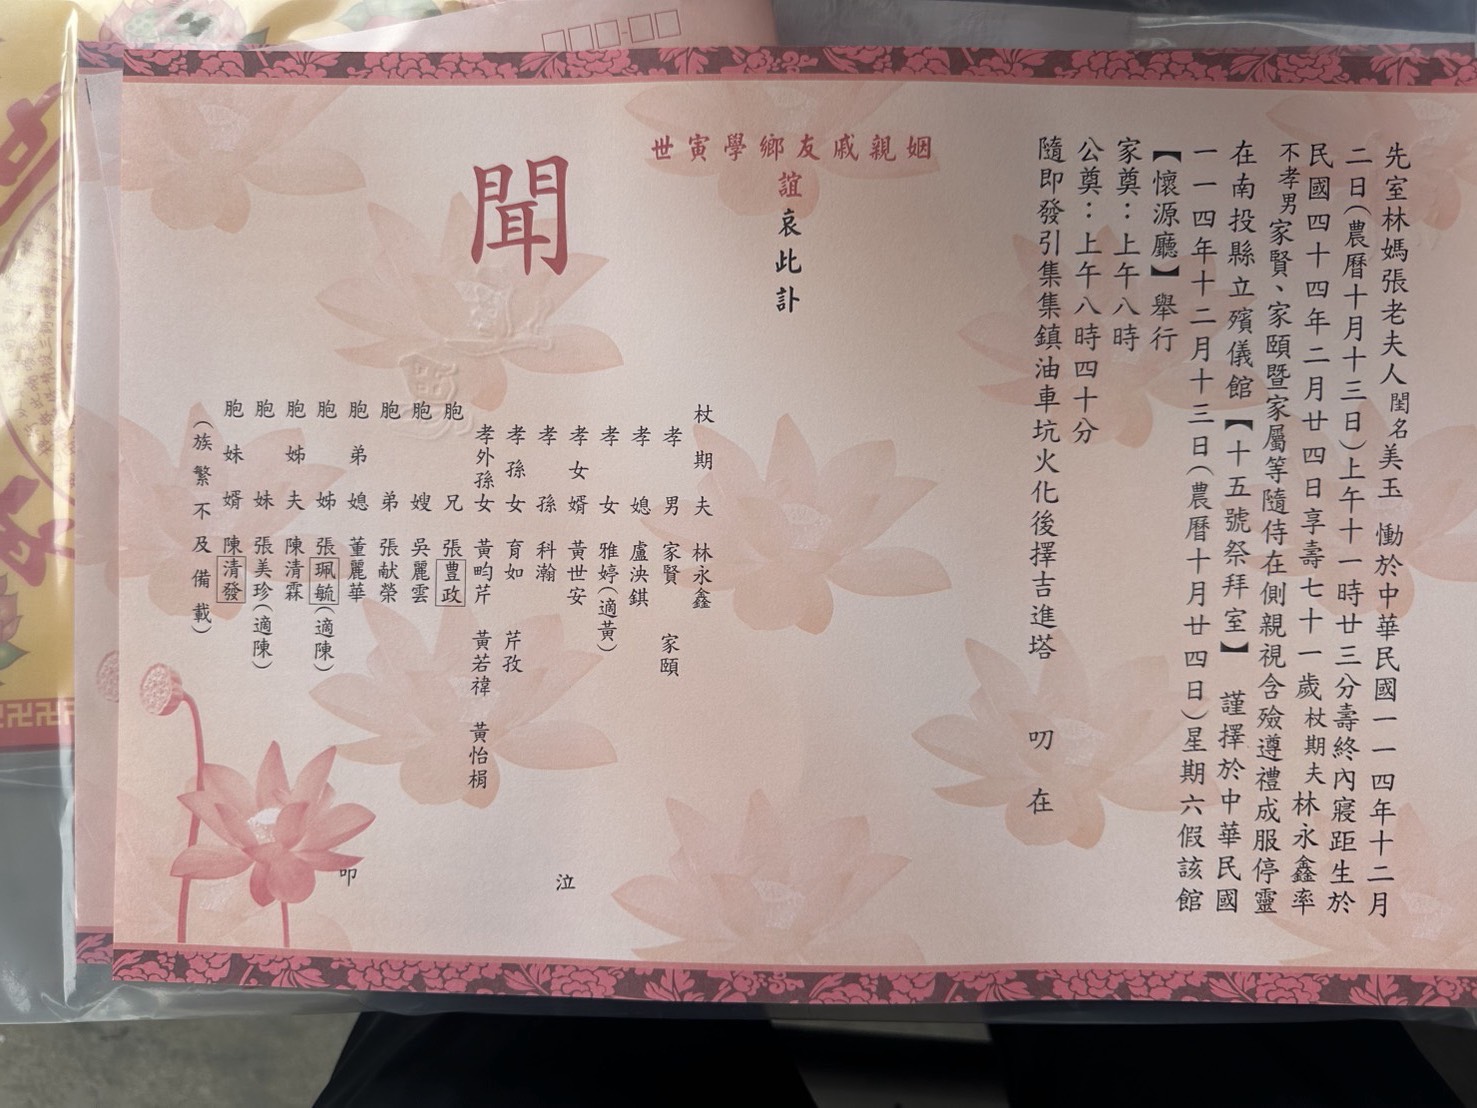 先室林媽張老夫人閨名美玉 慟於中華民國一一四年十二月
二日(農曆十月十三日)上午十一時廿三分壽終內寢距生於
民國四十四年二月廿四日享壽七十一歲杖期夫林永鑫率
不孝男家賢、家頤暨家屬等隨侍在側親視含殮遵禮成服停靈
在南投縣立殯儀館【十五號祭拜室】 謹擇於中華民國
一一四年十二月十三日(農曆十月廿四日)星期六假該館
【懷源廳】舉行
家奠：上午八時
公奠：上午八時四十分
隨即發引集集鎮油車坑火化後擇吉進塔 叨 在
姻親戚友鄉學寅世
誼哀此訃
聞
杖期夫 林永鑫
孝男 家賢 家頤
孝媳 盧泱錤
孝女 雅婷(適黃)
孝女婿 黃世安
孝孫 科瀚
孝孫女 育如 芹孜
孝外孫女 黃畇芹 黃若禕 黃怡楣
胞兄 張豊政
胞嫂 吳麗雲
胞弟 張献榮
胞弟媳 董麗華
胞姊 張珮毓(適陳)
胞姊夫 陳清霖
胞妹 張美珍(適陳)
胞妹婿 陳清發
(族繁不及備載)
泣
叩